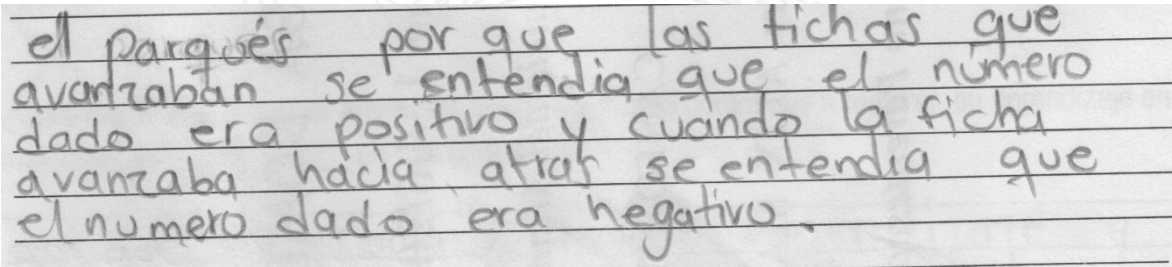 el parqués por que las fichas que
avanzaban se entendia que el número
dado era positivo y cuando la ficha
avanzaba hacia atras se entendia que
el numero dado era negativo.